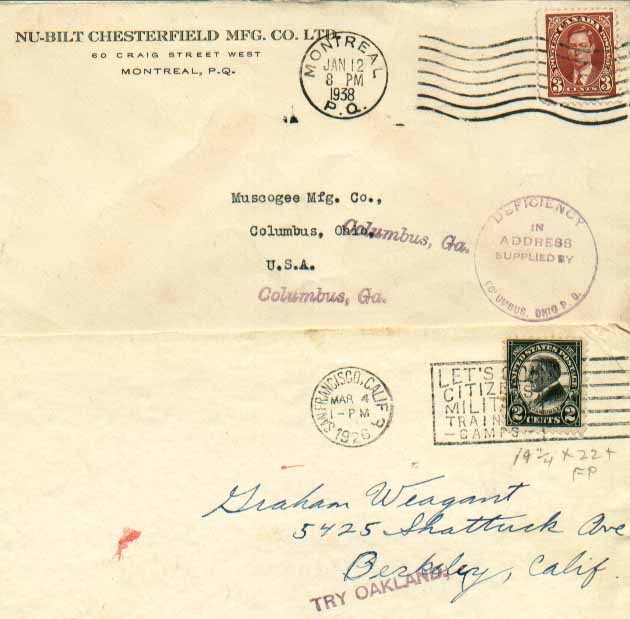 NU-BILT CHESTERFIELD MFG. CO. LTD.
60 CRAIG STREET WEST
MONTREAL, P.Q.
MONTREAL
JAN 12
8 PM
1938
P. Q.
POSTES CANADA POSTAGE
3 CENTS 3
Muscogee Mfg. Co.,
Columbus, Ohio,
Columbus, Ga.
U.S.A.
Columbus, Ga.
DEFICIENCY
IN
ADDRESS
SUPPLIED BY
COLUMBUS, OHIO P. O.
SAN FRANCISCO, CALIF
MAR 4
1-PM
1926
LET'S
CITIZENS
MILITA
TRAIN
CAMPS
UNITED STATES POSTAGE
2 CENTS 2
14 3/4 x 22 +
FP
Graham Weagant
5425 Shattuck Ave
Berkeley, Calif.
TRY OAKLAND.